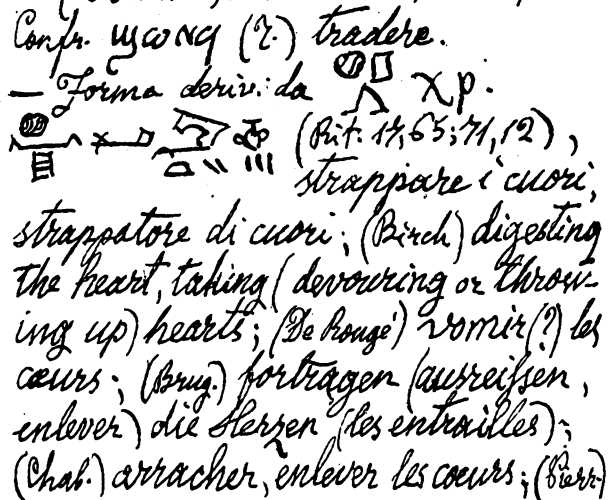 Confr. ϣωⲛϥ (7.) tradere.
— Forma deriv: da 𓐍𓊪𓂻 χp.
(Rit. 17, 65; 71, 12),
strappare i cuori,
strappatore di cuori; (Birch) digesting
the heart, taking (devouring or throw-
ing up) hearts; (De Rougé) vomir (?) les
cœurs; (Brug.) fortragen (ausreissen,
enlever) die Herzen (les entrailles);
(Chab.) arracher, enlever les cœurs; (Pierr.)